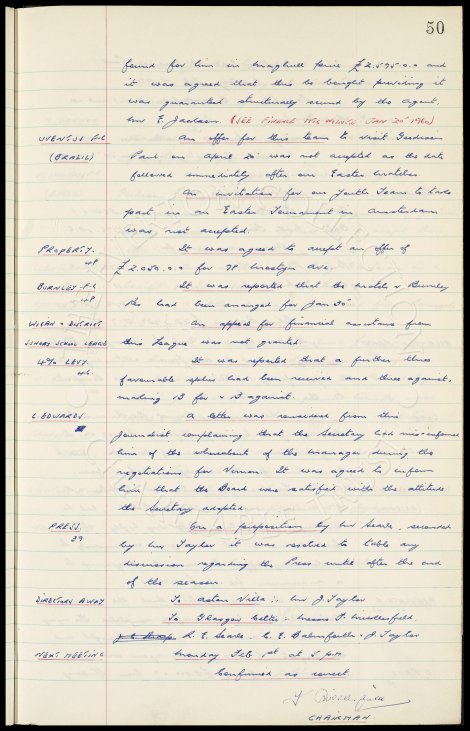 50
found for him in Maghull price £2.595.0.0 and
it was agreed that this be bought providing it
was guaranteed structurally sound by the agent,
Mr E. Jackson. (SEE FINANCE MTG MINUTE JAN 20th 1960)
JUVENTUS F.C. An offer for this team to visit Goodison
(BRAZIL) Park on April 20th was not accepted as the date
followed immediately after our Easter matches.
An invitation for our Youth Team to take
part in an Easter Tournament in Amsterdam
was not accepted.
PROPERTY. It was agreed to accept an offer of
48 £2.050.0.0 for 78 Mostyn Ave.
BURNLEY F.C. It was reported that the match v Burnley
48 Res had been arranged for Jan 30th
WIGAN & DISTRICT An appeal for financial assistance from
JUNIORS SCHOOL LEAGUE this League was not granted.
4% LEVY. It was reported that a further three
46. favourable replies had been received and three against,
making 13 for & 13 against.
L. EDWARDS. A letter was received from this
journalist complaining that the Secretary had mis-informed
him of the whereabouts of the manager during the
negotiations for Vernon. It was agreed to inform
him that the Board were satisfied with the attitude
the Secretary adopted.
PRESS. On a proposition by Mr Searle, seconded
39 by Mr Taylor it was resolved to table any
discussion regarding the Press until after the end
of the season.
DIRECTORS AWAY To Aston Villa :- Mr J. Taylor
To Glasgow Celtic :- Messrs F. Micklesfield
R. E. Searle. C. E. Balmforth & J. Taylor
NEXT MEETING Monday Feb 1st at 5 pm.
Confirmed as correct.
CHAIRMAN